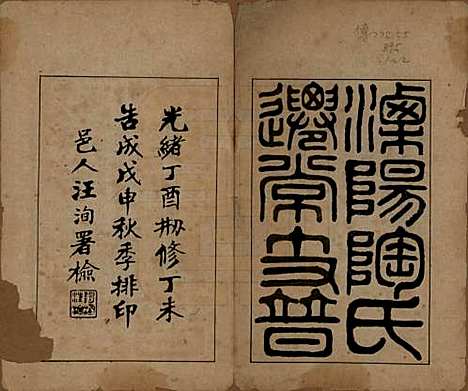 溧陽陶氏
遷常支普
光緒丁酉刱修丁未
告成戊申秋季排印
邑人汪洵署檢